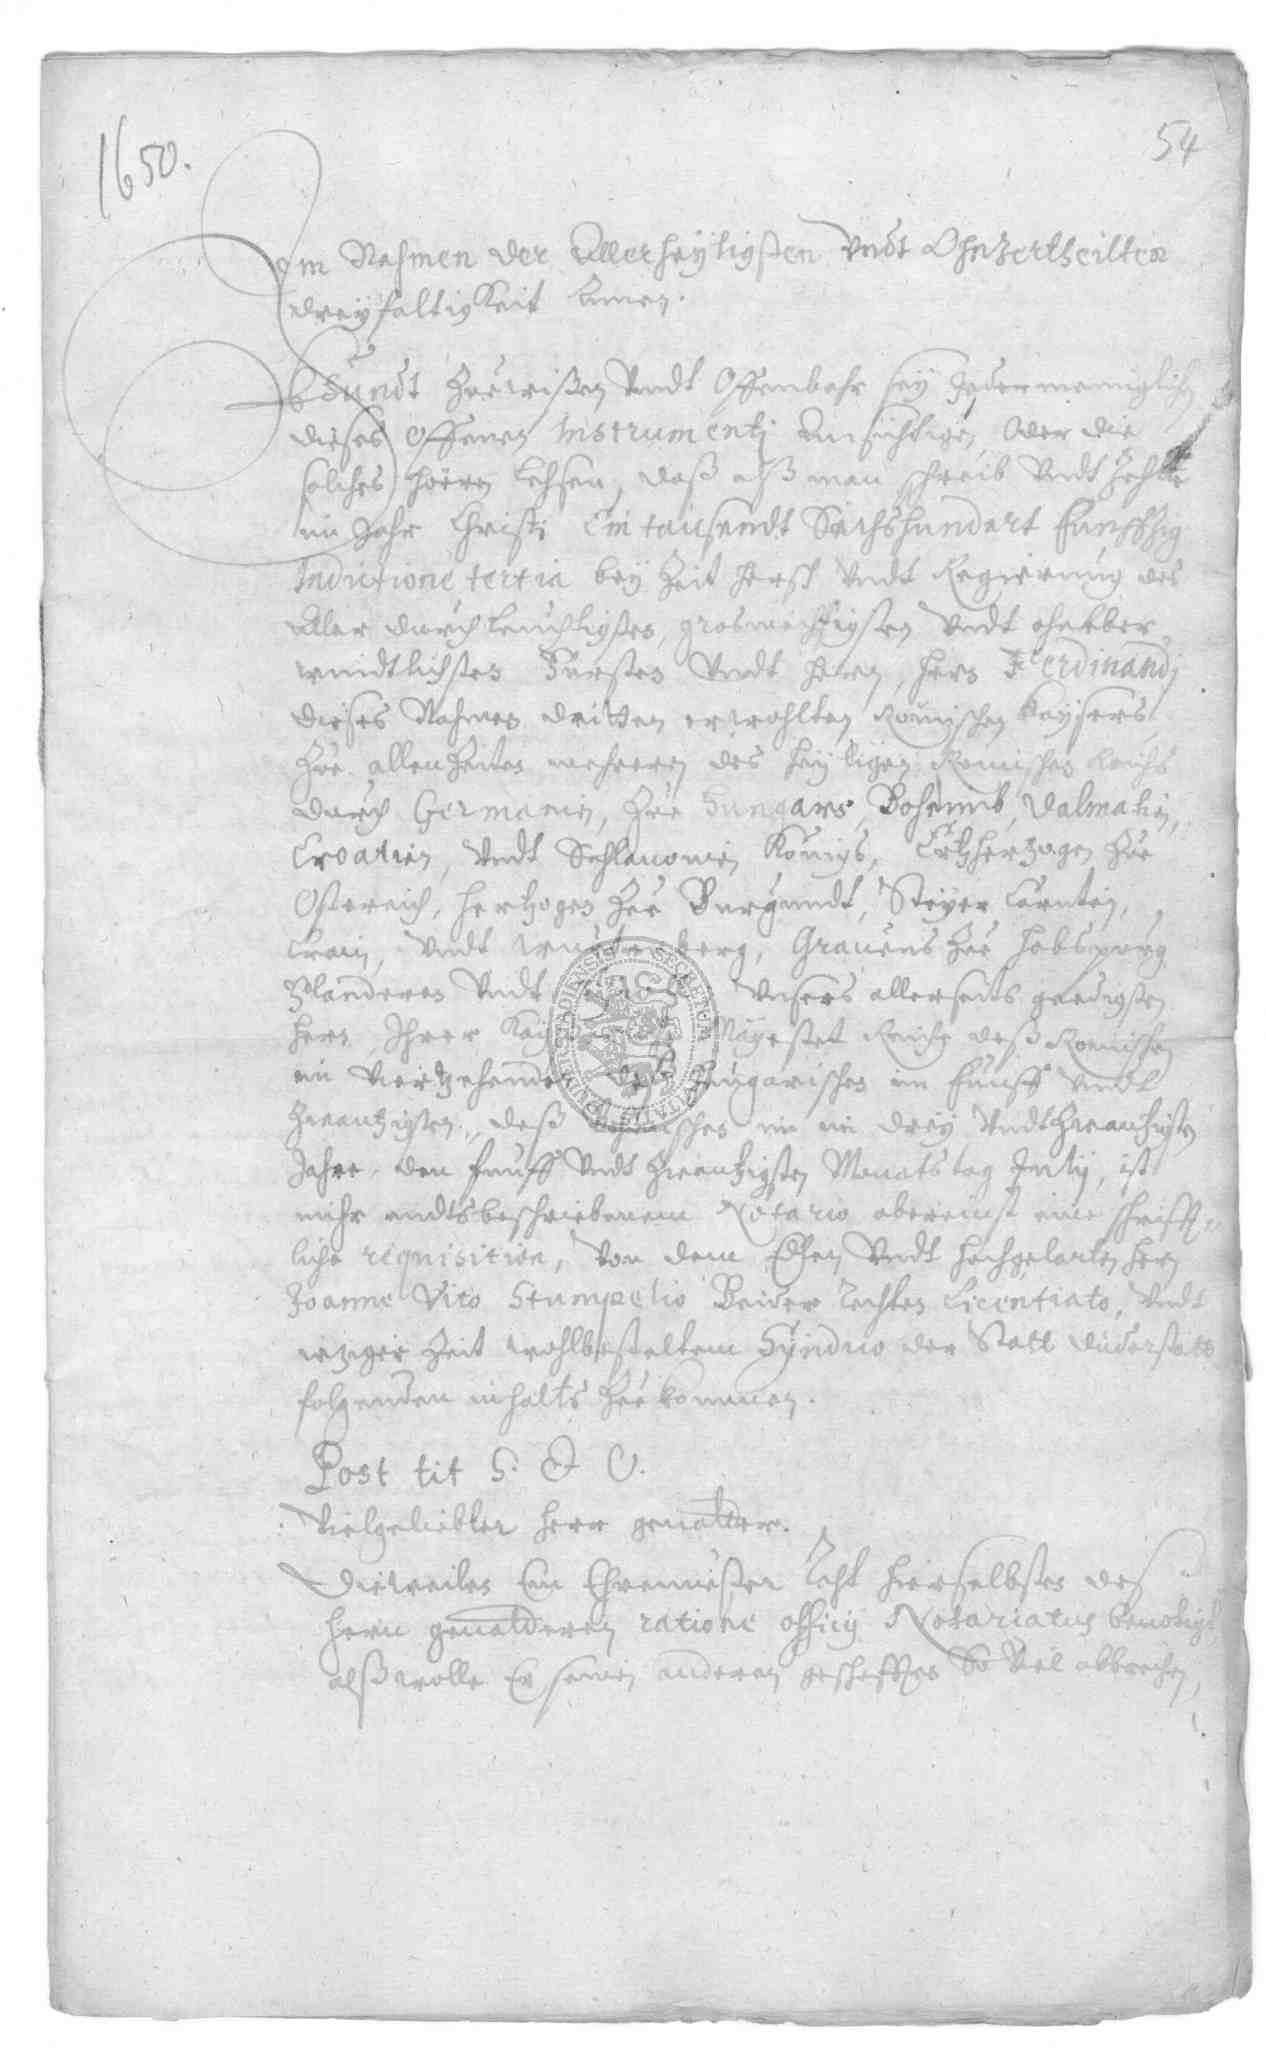 1650.
54
Im Nahmen der Allerheyligsten Undt Ohnzertheilten
dreyfaltigkeit Amen.
Khundt Zue wißen Undt Offenbahr sey Jedermenniglichen
dieses Offenen Instrumentj Ansichtigen Oder die
solches hören Lehsen, daß alß man schreib Undt Zehlte
im Jahr Christi Ein tausendt Sechshundert Funffzig
Indictione tertia bey Zeit Undt Regierung des
Aller durchleuchtigsten, grosmechtigsten Undt ohnüber
windtlichsten Fursten Undt Herrn, Hern Ferdinandj
dieses Nahmen dritten erwohlten Römischen Kaysers,
Zue allen Zeiten mehreren des heyligen Romischen Reichs
durch Germanien, Zue Hungarn, Bohemb, Dalmatien,
Croatien, Undt Schlauonien Königs, Ertzhertzogen Zue
Ostereich, Hertzogen Zue Burgundt, Steyer Cärnten,
Crain, Undt Grauens Zue Habspurg
Flanderen Undt Unsers allerseits gnedigsten
Hern, Ihrer Mayestet Reiche deß Romischen
im Viertzehenden Hungarischen im funff Undt
Zwantzigsten, deß im drey Undt Zwantzigsten
Jahre, den funff Undt Zwantzigsten Monatstag July, ist
mihr endtsbeschriebenem Notario abereinst eine schrifft-
liche requisition, Von dem Edlen Undt Hochgelarten Hern
Joanne Vito Stumpelio Beider Rechten Licentiato, Undt
itziger Zeit wohlbesteltem Syndico der Statt Duderstatt
folgenden inhalts Zue kommen.
Post tit S. & O.
Vielgeliebter Herr geuatter.
Dieweilen Ein Ehrenuester Raht hierselbsten des
Hern geuatteren ratione officij Notariatus benötigt,
alß wolle Er seinen anderen gescheften So Viel abbrechen,